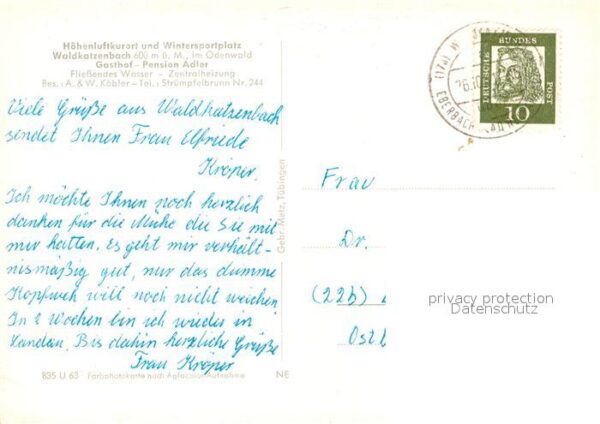 Höhenluftkurort und Wintersportplatz
Waldkatzenbach 600 m ü. M., im Odenwald
Gasthof - Pension Adler
Fließendes Wasser - Zentralheizung
Bes.: A. & W. Köbler - Tel.: Strümpfelbrunn Nr. 244
Viele Grüße aus Waldkatzenbach
sendet Ihnen Frau Elfriede
Kröper.
Ich möchte Ihnen noch herzlich
danken für die Mühe die Sie mit
mir hatten. Es geht mir verhält-
nismäßig gut, nur das dumme
Kopfweh will noch nicht weichen.
In 2 Wochen bin ich wieder in
Landau. Bis dahin herzliche Grüße
Frau Kröper
B35 U 63 Farbfotokarte nach Agfacolor-Aufnahme NE
Gebr. Metz, Tübingen
EBERBACH
DEUTSCHE BUNDESPOST
10
Frau
Dr.
(22b)
privacy protection
Datenschutz